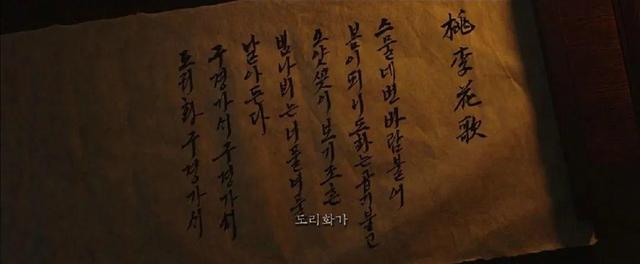 桃李花歌
스물네번바람불어
봄이되니도화는곱게붉고
오얏꽃이보기조흔
범나비는너풀너풀
날아든다
구경가시구경가시
도리화구경가시
도리화가